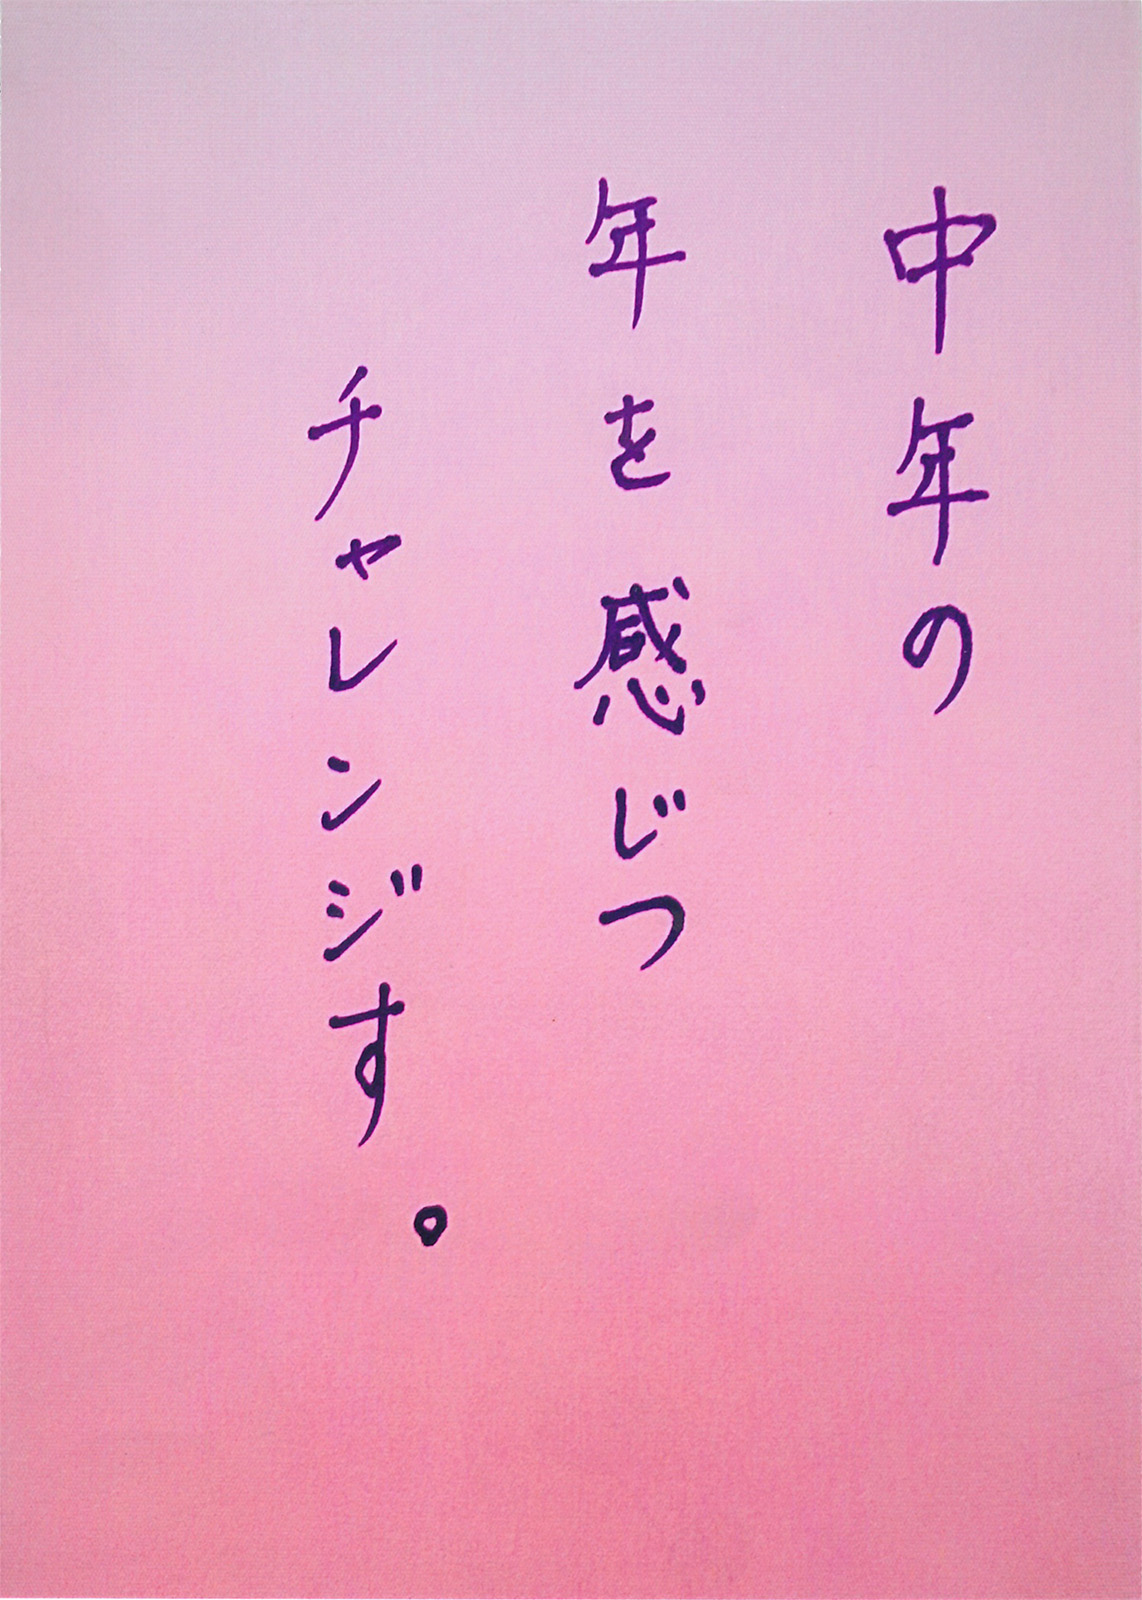 中年の
年を感じつ
チャレンジす。